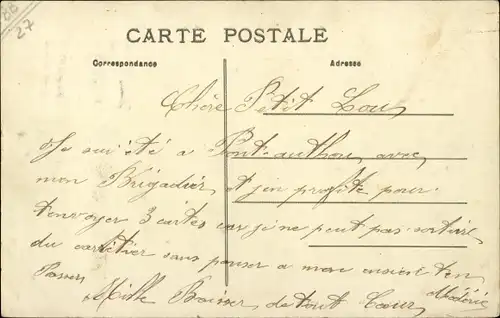 27
CARTE POSTALE
Correspondance
Adresse
Chère Petit Lou
Je sui été a Pont-authou avec
mon Brigadier, et jen profite pour
tenvoyer 3 cartes car je ne peut pas sortire
du cantier sans penser a mon ancient ten
Passer
Mille Baiser de tout Cœur